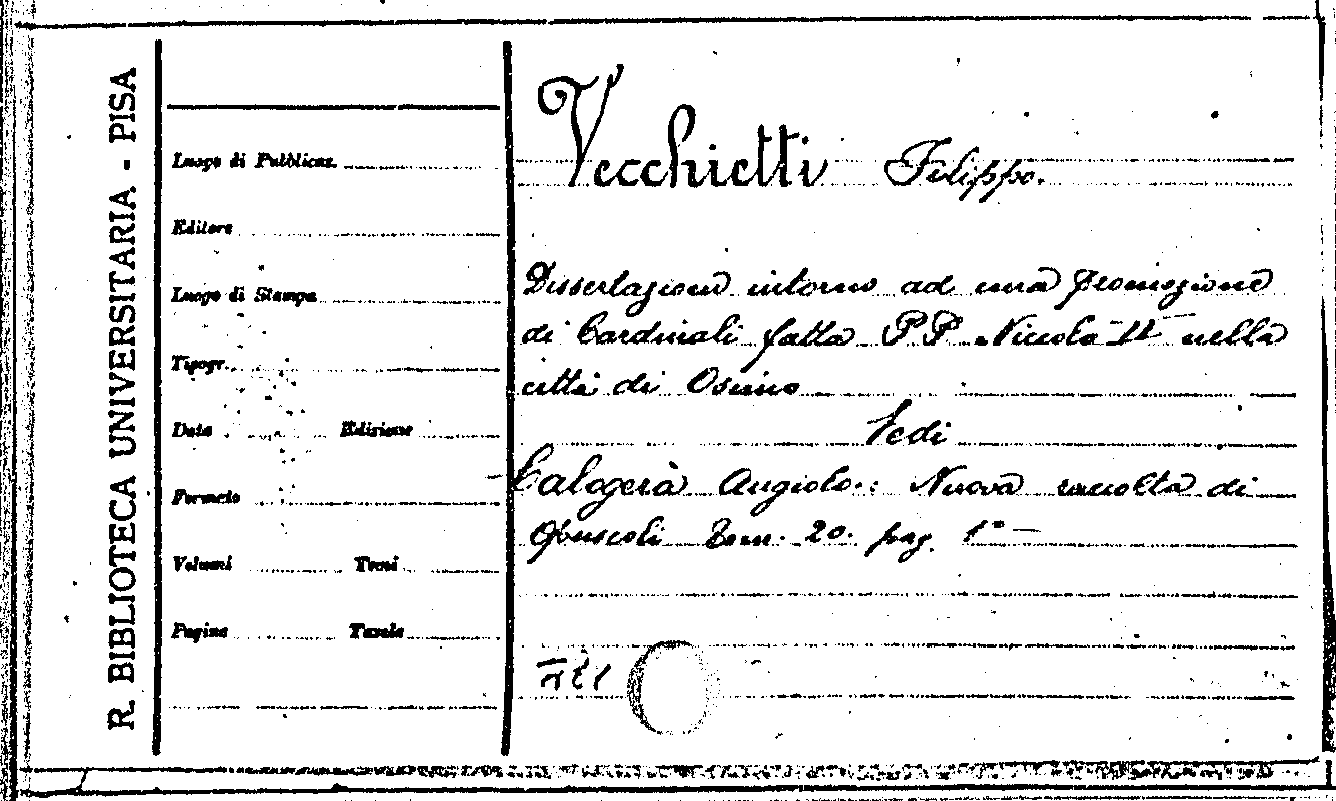 R. BIBLIOTECA UNIVERSITARIA - PISA
Luogo di Pubblicaz.
Editore
Luogo di Stampa
Tipogr.
Data Edizione
Formato
Volumi Tomi
Pagine Tavole
Vecchietti Filippo.
Dissertazione intorno ad una promozione
di Cardinali fatta PP. Niccolò II nella
città di Osimo
Vedi
Calogerà Angiolo: Nuova raccolta di
Opuscoli Tom. 20. pag. 1ª —